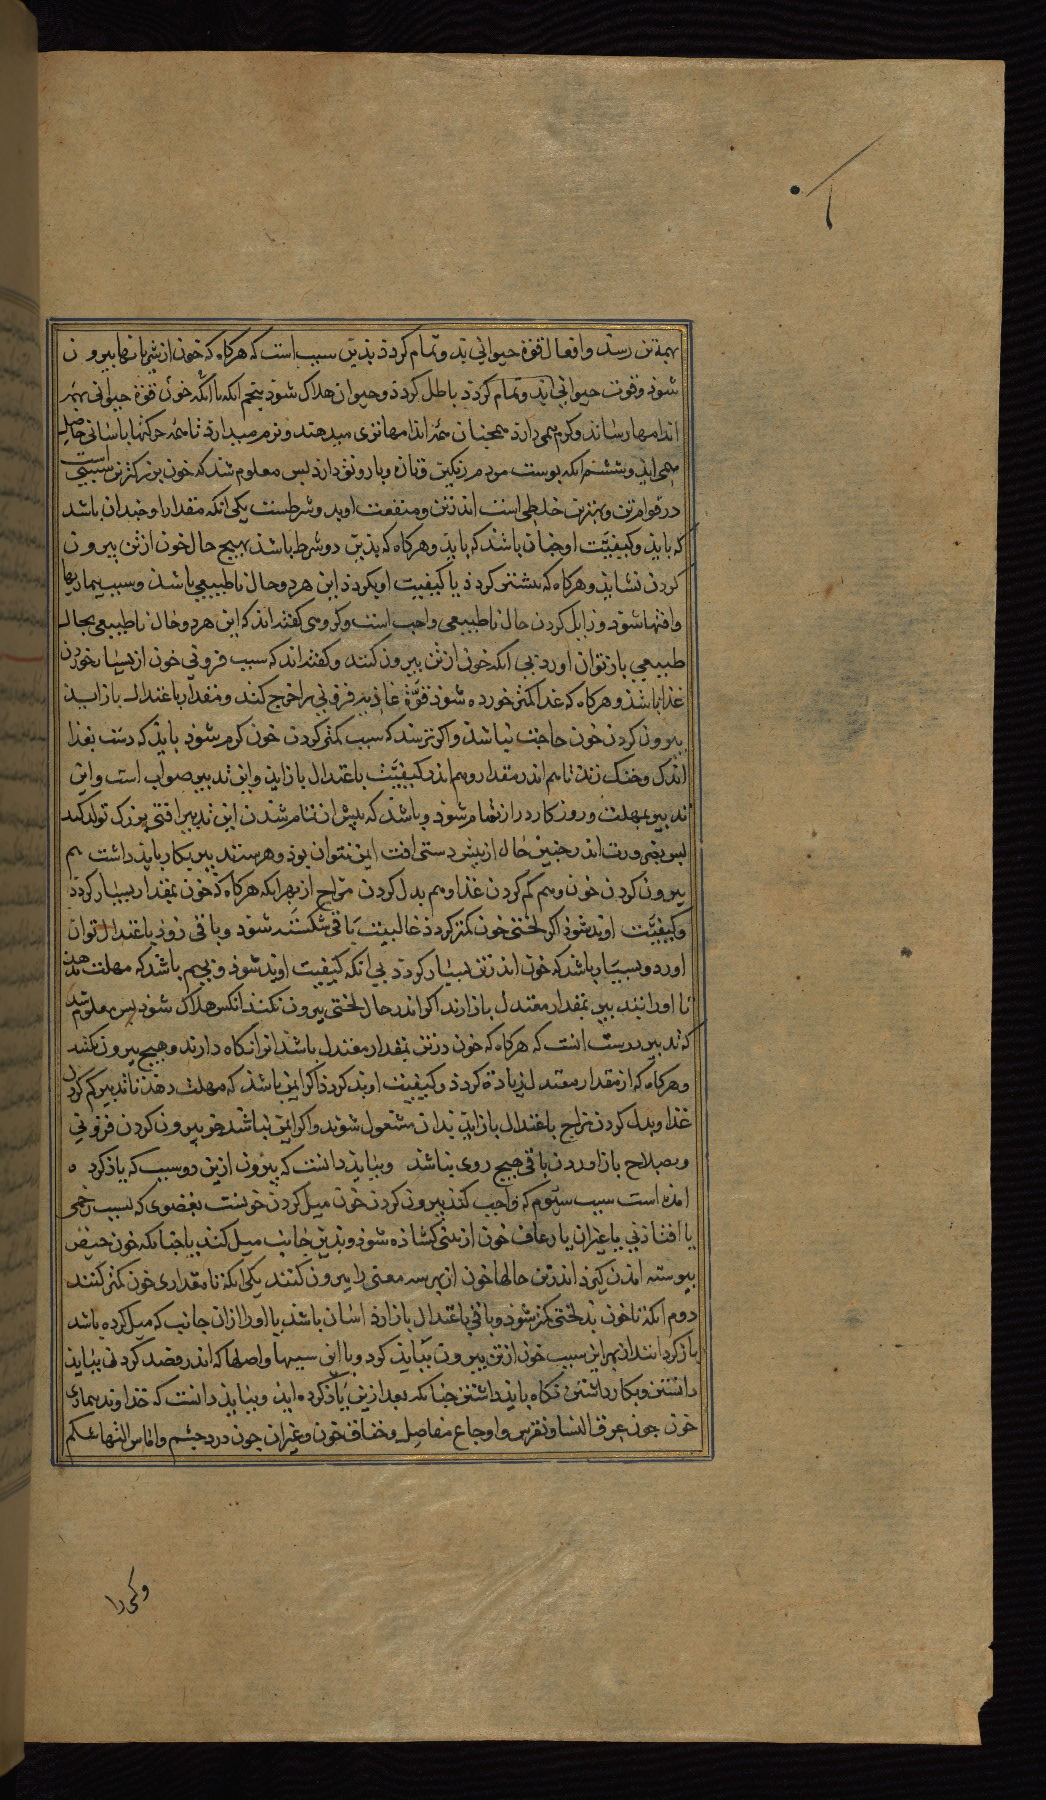 بهمه تن رسذ وافعال قوّة حیوانی بذو تمام کردذ بذین سبب است که هرکاه که خون از شریانها بیرون
شوذ وقوت حیوانی باطل کردذ وحیوان هلاک شوذ پنجم انکه با انکه خون قوّة حیوانی بهمه
اندامها رساند وکرم همی دارذ همجنان همه اندامها نرمی میدهند ونرم میدارد تا همه حرکتها باسانی حاصل
همی اید وششم انکه پوست مردم رنکین وتازه وبا رونق دارذ پس معلوم شذ که خون بزرکترین سببی است
در قوام تن وبهترین خلطی است اندر تن ومنفعت اوبدو شرطست یکی انکه مقدار او جندان باشد
که بایذ وکیفیّت او جنان باشذ که بایذ وهرکاه که بذین دو شرط باشذ بهیج حال خون از تن بیرون
کردن نشایذ وهرکاه که بیشتر کردذ یا کیفیت او بکردذ این هر دو حال ناطبیعی باشذ وسبب بیماریها
وافتها شوذ وزایل کردن حال ناطبیعی واجب است وکروهی کفته اند که این هر دو حال ناطبیعی بحال
طبیعی باز توان اورد بی انکه خون از تن بیرون کنند وکفته اند که سبب فزونی خون از بسیار خوردن
غذا باشذ وهرکاه که غذا کمتر خورده شوذ قوّة غاذیه فزونی را خرج کنند ومقدار باعتدال باز ایذ
بیرون کردن خون حاجت نباشذ واکر ترسند که سبب کمتر کردن خون کرم شوذ بایذ که دست بغذا
اندک وخنک زنند تا هم اندر مقدار وهم اندر کیفیّت باعتدال باز ایذ واین تدبیر صواب است واین
تدبیر بمهلت وروزکار دراز تمام شوذ وباشذ که پیش از تمام شدن این تدبیر افتی بزرک تولد کند
پس بضرورت اندر جنین حال از پیش دستی افت ایمن نتوان بوذ وهر سه تدبیر بکار بایذ داشت هم
بیرون کردن خون وهم کم کردن غذا وهم بدل کردن مزاج از بهر انکه هرکاه که خون بمقدار بسیار کردذ
وکیفیّت او بد شوذ اکر لختی خون کمتر کردذ غالبیّت باقی شکسته شوذ وباقی زوذ باعتدال توان
اورد وبسیار باشد که خون اندر تن بسیار کردد بی انکه کیفیت او بد شوذ وبیم باشد که مهلت ندهذ
تا اورا بتدبیر بمقدار معتدل باز ارند اکر اندر حال لختی بیرون نکنند انکس هلاک شوذ پس معلوم شد
که تدبیر درست انست که هرکاه که خون در تن بمقدار معتدل باشذ انرا نکاه دارند وهیج بیرون نکنند
وهرکاه که از مقدار معتدل زیادة کردذ وکیفیت او بد کردذ اکر ایمن باشذ که مهلت دهذ تا تدبیر کم کردن
غذا وبدل کردن مزاج باعتدال باز ایذ بدان مشغول شوند واکر ایمن نباشد جز بیرون کردن فزونی
وبصلاح باز اوردن باقی هیج روی نباشذ وببایذ دانست که بیرون ازین دو سبب که یاذ کرده
امذه است سبب سیّوم که واجب کند بیرون کردن خون میل کردن خونست بعضوی که بسبب زخمی
یا افتاذنی یا غیر ان یا رعاف خون از بینی کشاذه شوذ وبذین جانب میل کند یا جنانکه خون حیض
پیوسته امذن کیرذ اندرین حالها خون از بهر سه معنی را بیرون کنند یکی انکه تا مقداری خون کمتر کنند
دوم انکه تا خون بد لختی کمتر شوذ وباقی باعتدال باز ارذ اسان باشد یا اورا از ان جانب که میل کرده باشد
باز کردانند از بهر این سبب خون از تن بیرون ببایذ کرد وبا این سببها واصلها که اندر فصد کردن ببایذ
دانستن وبکار داشتن نکاه بایذ داشتن جنانکه بعد ازین یاذ کرده ایذ وببایذ دانست که خداوند بیماری
خون جون عرق النسا ونقرس واوجاع مفاصل وخناق خون وغیر ان جون درد جشم واماس التهاب شکم
وکمی را